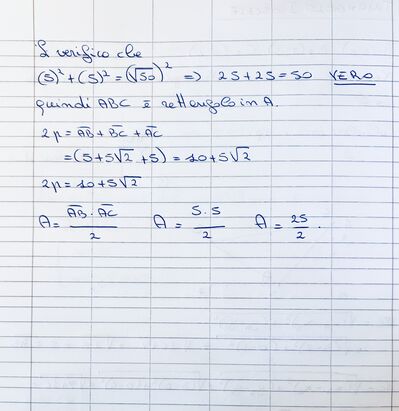 E verifico che
(5)² + (5)² = (√50)² ⇒ 25 + 25 = 50 VERO
quindi ABC è rettangolo in A.
2p = AB + BC + AC
= (5 + 5√2 + 5) = 10 + 5√2
2p = 10 + 5√2
A = AB · AC / 2 A = 5 . 5 / 2 A = 25 / 2 .